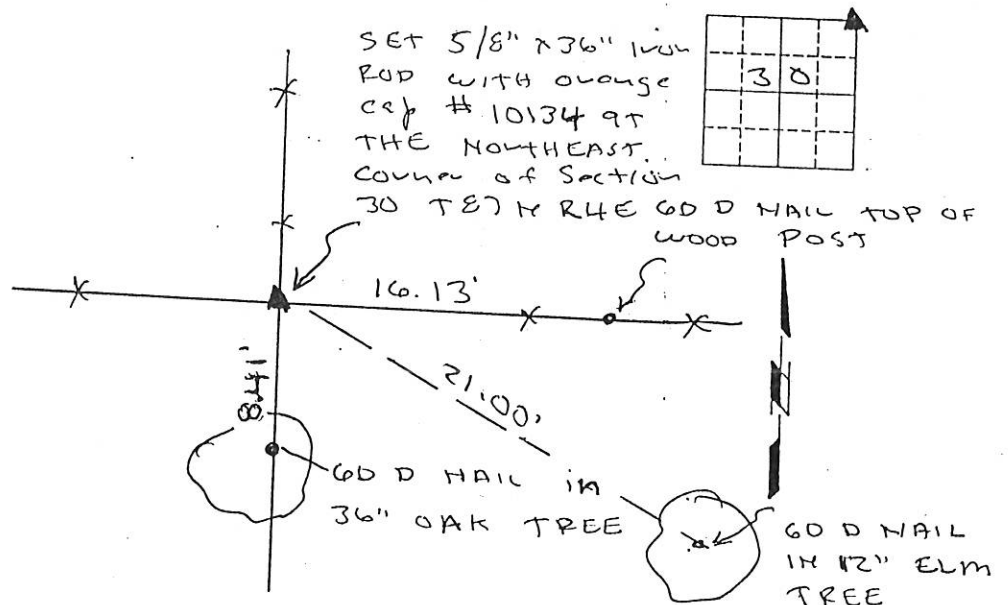 SET 5/8" x 36" Iron
ROD WITH orange
cap # 10134 at
THE NORTHEAST
Corner of Section
30 T87N R4E
30
60 D NAIL TOP OF
WOOD POST
16.13'
21.00'
8.41'
60 D NAIL in
36" OAK TREE
N
60 D NAIL
IN 12" ELM
TREE